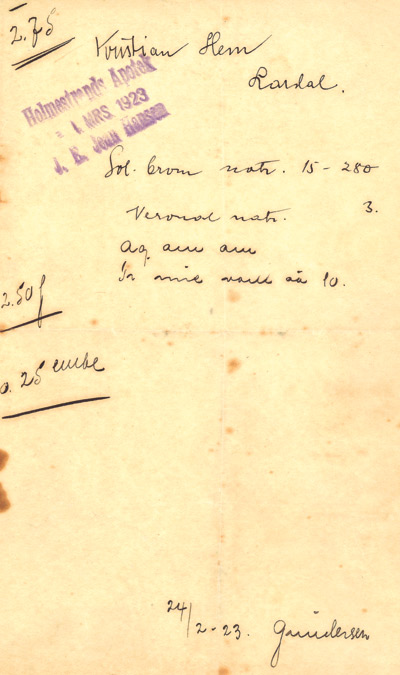 2.75
Kristian Hem
Lardal.
Holmestrands Apotek
1. MRS 1923
J. E. Jenn Hansen
Sol. brom natr. 15 - 280
Veronal natr. 3.
Aq. am am
Tr nuc vom aā 10.
2.50
0.25 embe
24/2-23. Gundersen